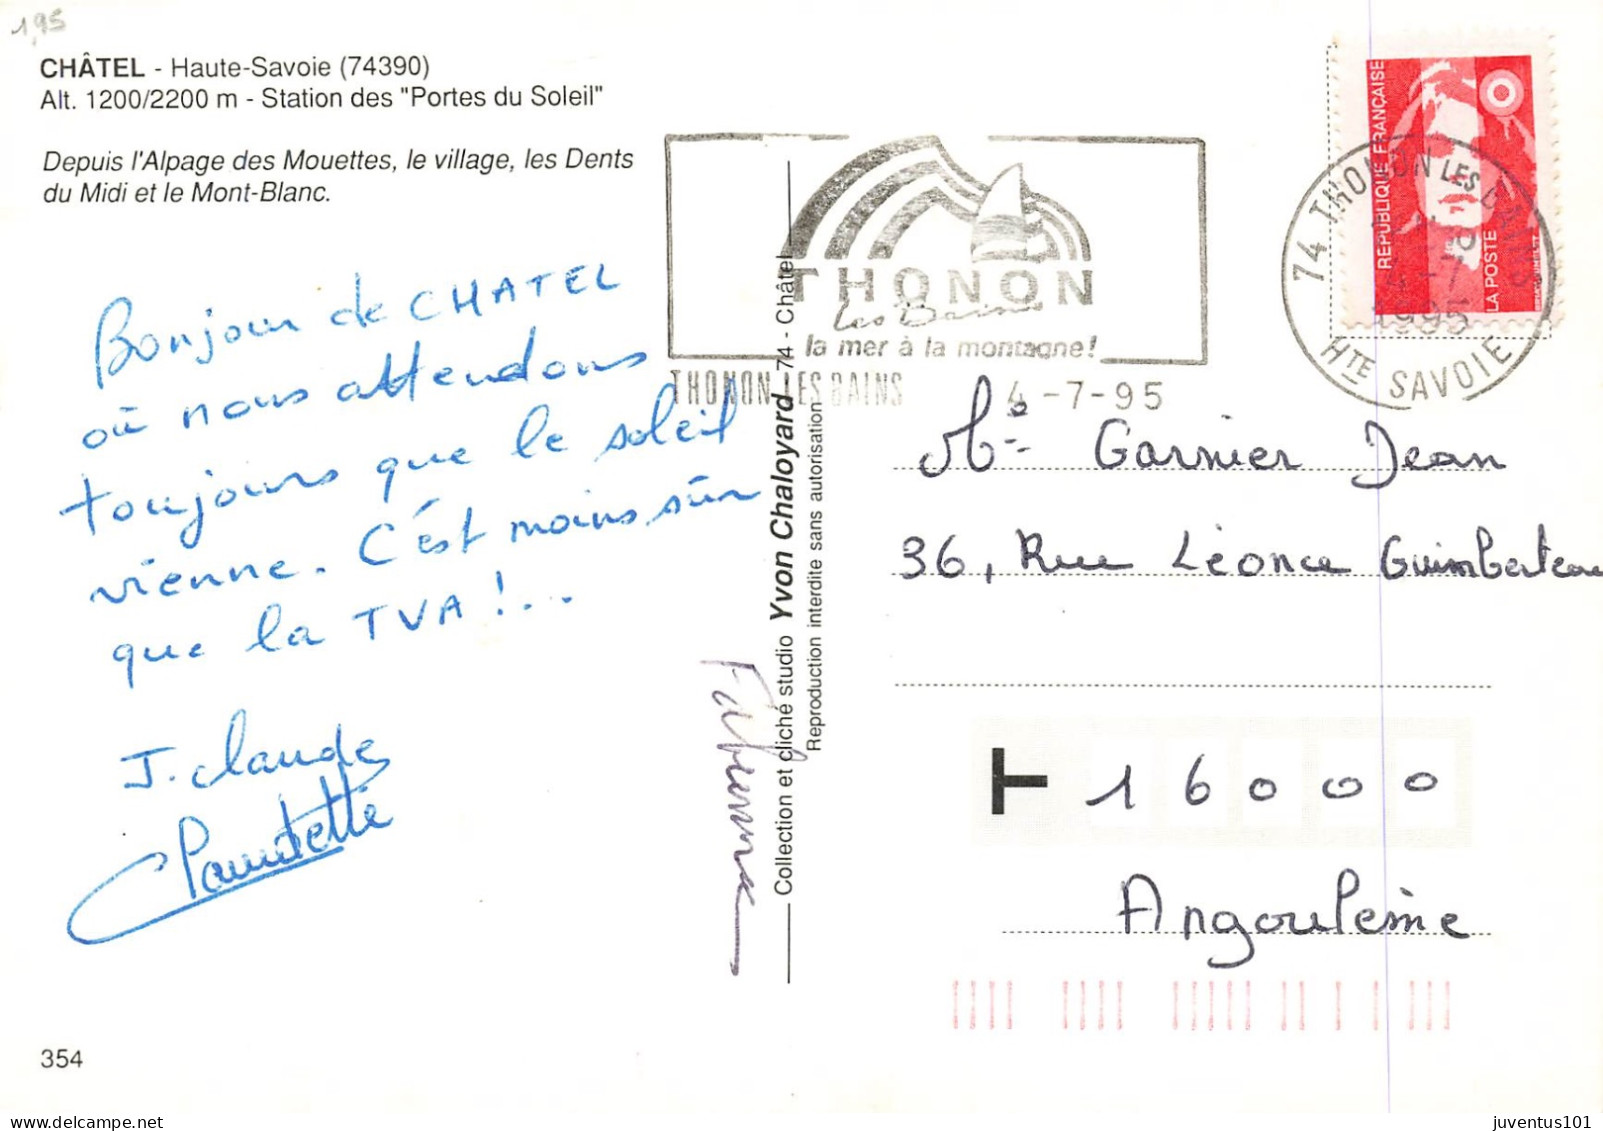 1,95
CHÂTEL - Haute-Savoie (74390)
Alt. 1200/2200 m - Station des "Portes du Soleil"
Depuis l'Alpage des Mouettes, le village, les Dents
du Midi et le Mont-Blanc.
Bonjour de CHATEL
où nous attendons
toujours que le soleil
vienne. C'est moins sûr
que la TVA !...
J. Claude
Claudette
Fabienne
354
Collection et cliché studio Yvon Chaloyard - 74 - Châtel
Reproduction interdite sans autorisation
THONON
les Bains
la mer à la montagne!
THONON-LES-BAINS 4-7-95
REPUBLIQUE FRANÇAISE
LA POSTE
74 THONON LES BAINS
4-7
1995
HTE SAVOIE
Me Garnier Jean
36, Rue Léonce Guimberteau
T 16000
Angoulême
juventus101